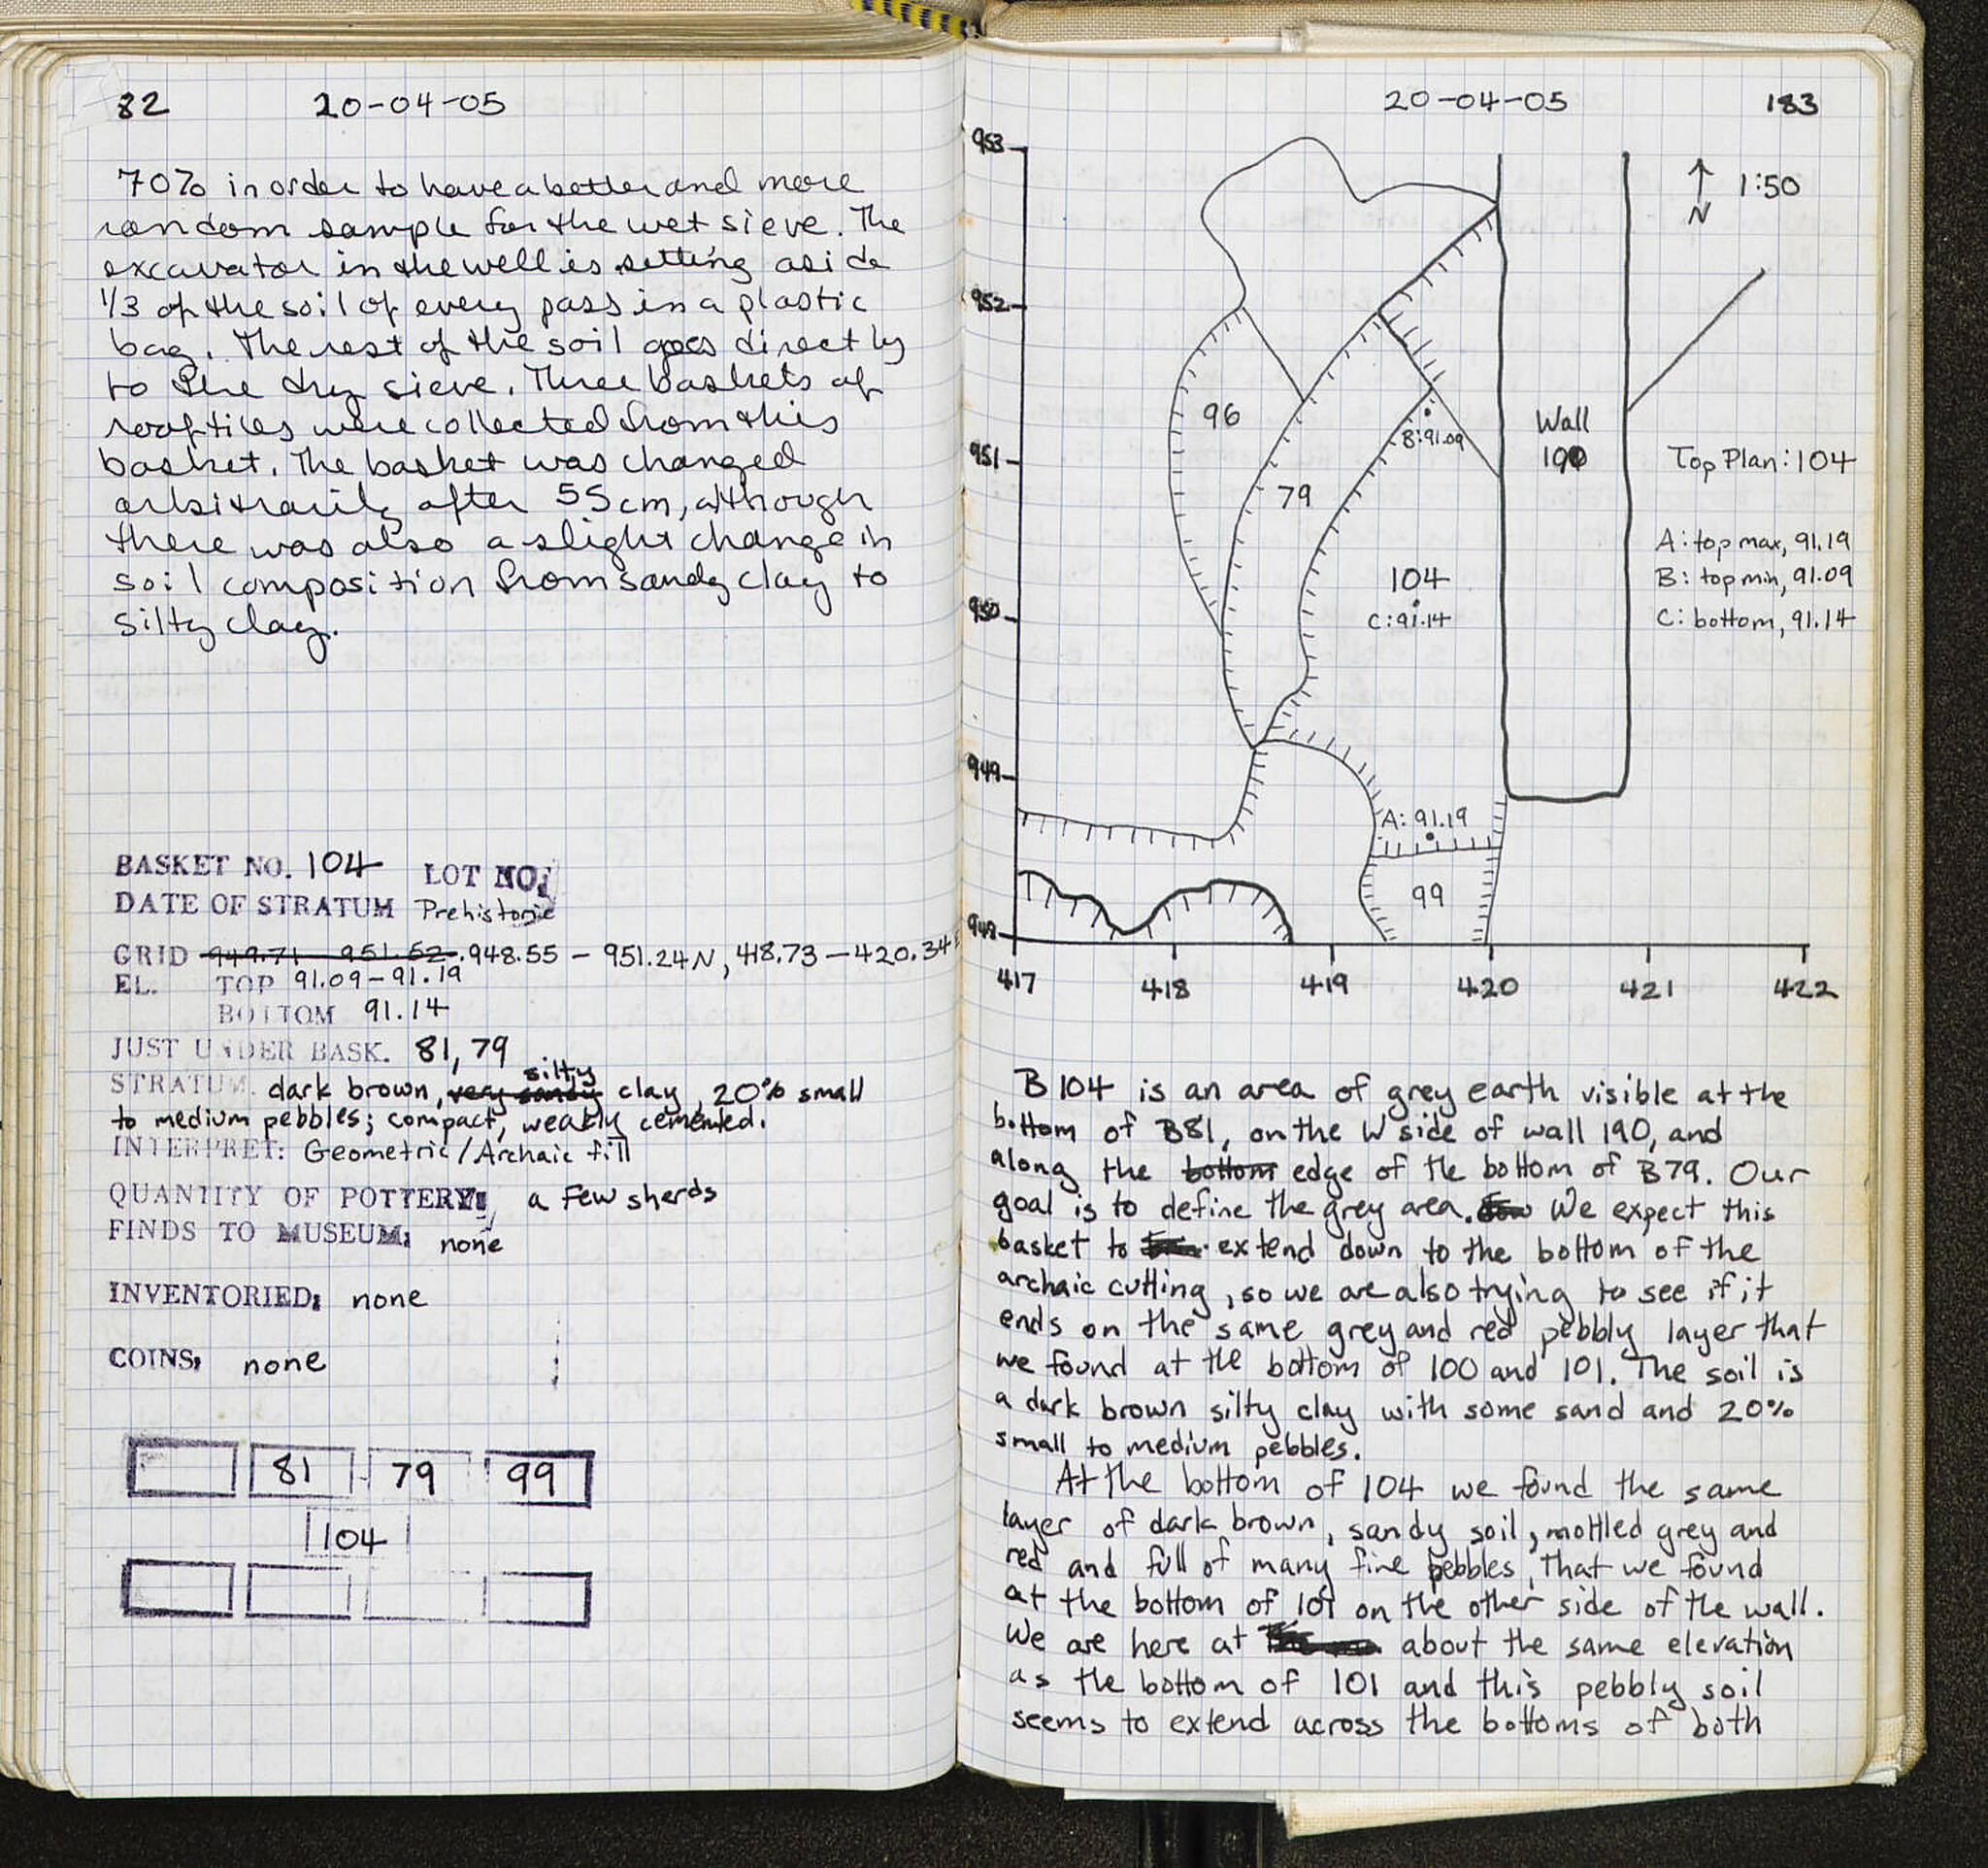 82 20-04-05
70% in order to have a better and more
random sample for the wet sieve. The
excavator in the well is setting aside
1/3 of the soil of every pass in a plastic
bag. The rest of the soil goes directly
to the dry sieve. Three baskets of
rooftiles were collected from this
basket. The basket was changed
arbitrarily after 55cm, although
there was also a slight change in
soil composition from sandy clay to
silty clay.
BASKET NO. 104 LOT NO.
DATE OF STRATUM Prehistoric
GRID 949.71 - 951.52. 948.55 - 951.24N, 418.73 - 420.34E
EL. TOP 91.09-91.19
BOTTOM 91.14
JUST UNDER BASK. 81, 79
STRATUM. dark brown, very sandy silty clay, 20% small
to medium pebbles; compact, weakly cemented.
INTERPRET: Geometric/Archaic fill
QUANTITY OF POTTERY: a few sherds
FINDS TO MUSEUM: none
INVENTORIED: none
COINS: none
81 79 99
104
20-04-05 183
953
952
951
950
949
948
417 418 419 420 421 422
N 1:50
96
79
B: 91.09
Wall
190
104
C: 91.14
A: 91.19
99
Top Plan: 104
A: top max, 91.19
B: top min, 91.09
C: bottom, 91.14
B104 is an area of grey earth visible at the
bottom of B81, on the W side of wall 190, and
along the bottom edge of the bottom of B79. Our
goal is to define the grey area. We expect this
basket to extend down to the bottom of the
archaic cutting, so we are also trying to see if it
ends on the same grey and red pebbly layer that
we found at the bottom of 100 and 101. The soil is
a dark brown silty clay with some sand and 20%
small to medium pebbles.
At the bottom of 104 we found the same
layer of dark brown, sandy soil, mottled grey and
red and full of many fine pebbles, that we found
at the bottom of 101 on the other side of the wall.
We are here at about the same elevation
as the bottom of 101 and this pebbly soil
seems to extend across the bottoms of both